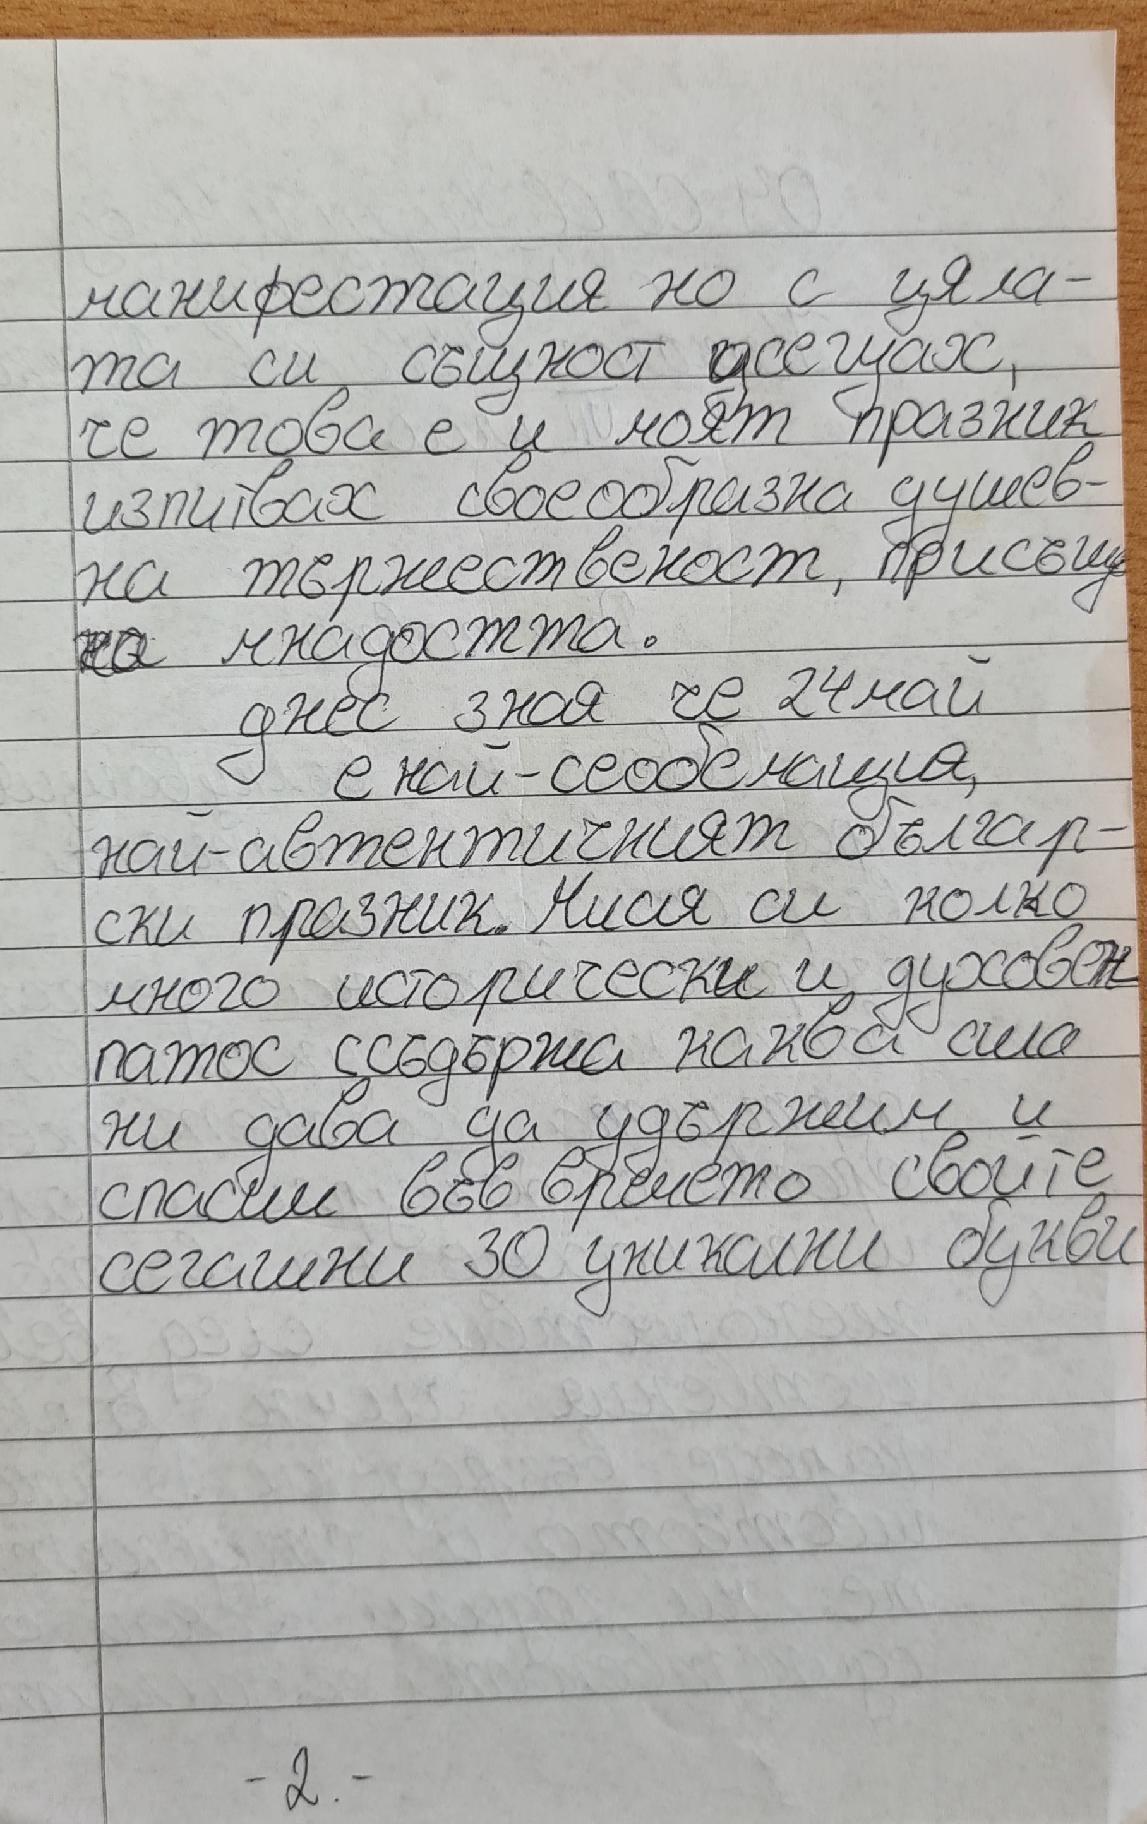 манифестация но с цяла-
та си същност усещах,
че това е и моят празник
изпитвах своеобразна душев-
на тържественост, присъщ
на мнадостта.
днес зная че 24 май
е най-сеобемащия,
най-автентичният българ-
ски празник. Мисля си колко
много исторически и духовен
патос ссъдържа каква сила
ни дава да удържим и
спасим във времето свойте
сегашни 30 уникални букви
- 2. -